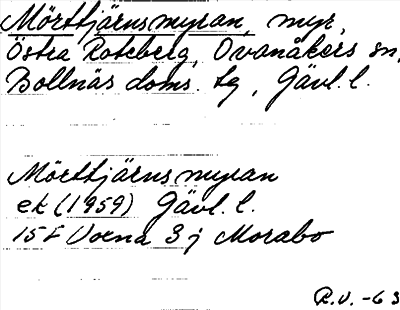 Mörttjärnsmyran, myr,
Östra Roteberg, Ovanåkers sn,
Bollnäs doms. tg, Gävl. l.
Mörttjärnsmyran
ek (1959) Gävl. l.
15F Voxna 3j Morabo
R.V. -63